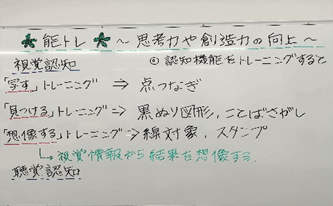 ★能トレ★ ～思考力や創造力の向上～
視覚認知 ◎認知機能をトレーニングすると
「写す」トレーニング ⇒ 点つなぎ
「見つける」トレーニング ⇒ 黒ぬり図形、ことばさがし
「想像する」トレーニング ⇒ 線対象、スタンプ
↳視覚情報から結果を想像する.
聴覚認知